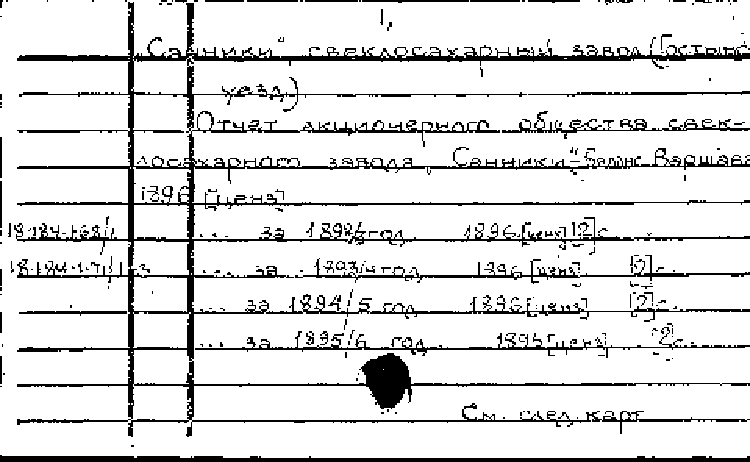 1,
„Санники“, свеклосахарный завод (Гостынс
уезд.)
Отчет акционерного общества свек-
лосахарного завода „Санники“. Баланс Варшава
1896 [ценз]
18.184.1.68/1 ... за 1892/3 год 1896 [ценз] [2] с.
18.184.1.71/1-3 ... за 1893/4 год 1896 [ценз] [2] с.
... за 1894/5 год 1896 [ценз] [2] с.
... за 1895/6 год 1896 [ценз] [2] с.
См. след. карт